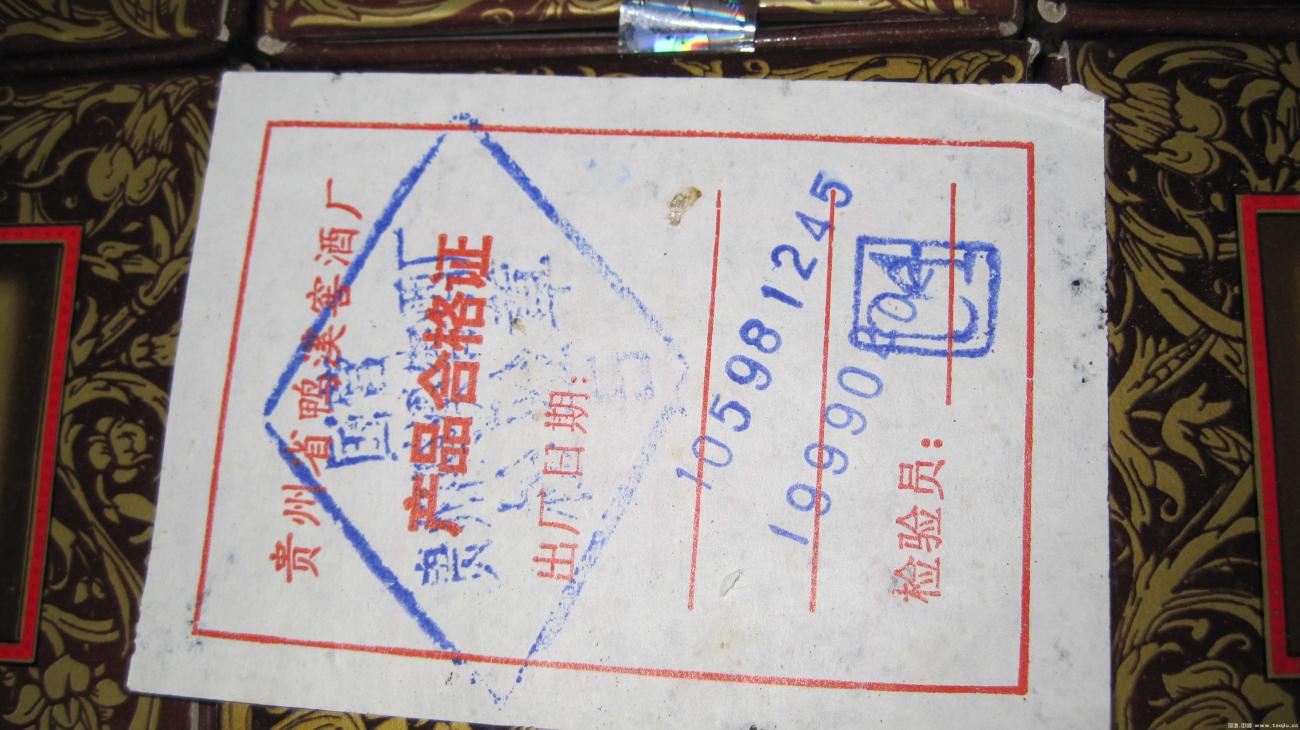 贵州省鸭溪窖酒厂
产品合格证
出厂日期:
10598 1245
19990
检验员:
04